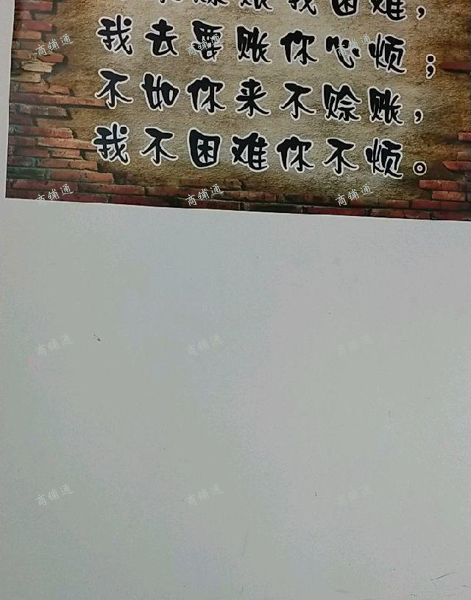 赊账我困难，
我去要账你心烦；
不如你来不赊账，
我不困难你不烦。
商铺通
商铺通
商铺通
商铺通
商铺通
商铺通
商铺通
商铺通
商铺通
商铺通
商铺通
商铺通